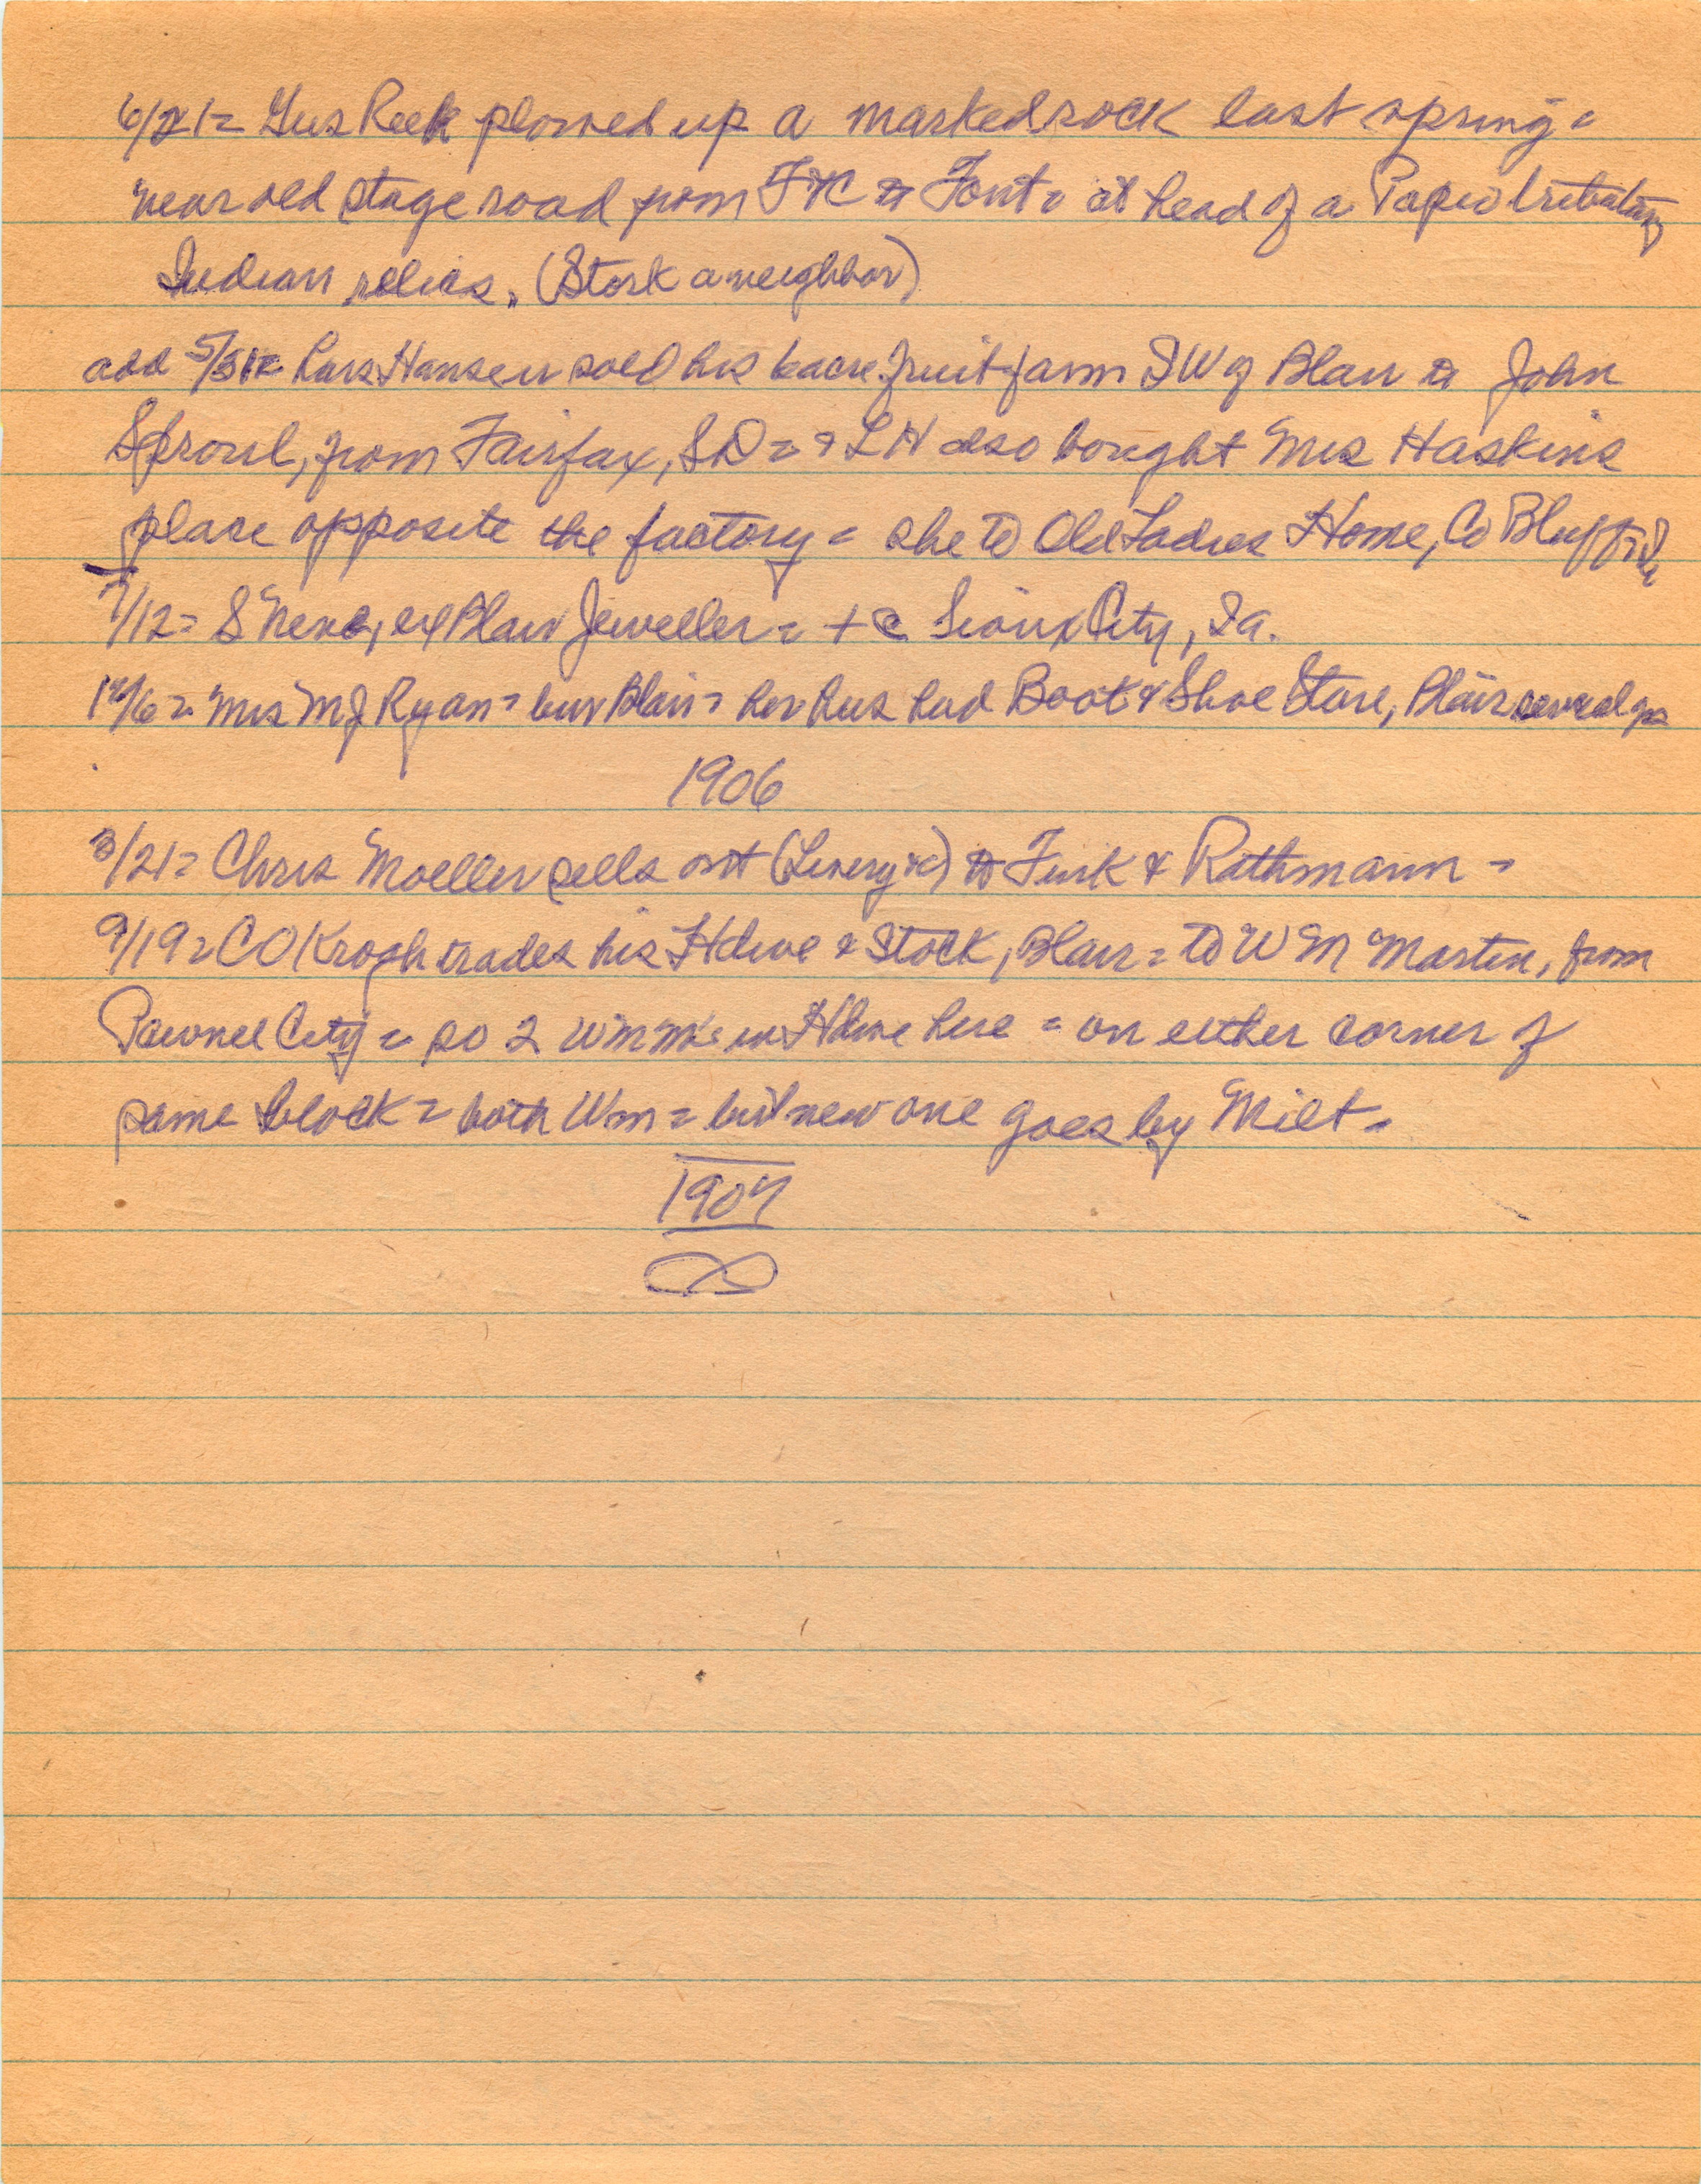 6/21= Gus Reek plowed up a marked rock last spring=
near old stage road from Ft C to Font= at head of a Papio tributary
Indian relics. (Stork a neighbor)
add 5/31= Lars Hansen sold his 6 acre fruit farm SW of Blair to John
Sproul, from Fairfax, SD= & LH also bought Mrs Haskins
place opposite the factory= she to Old Ladies Home, Co Bluffs, Ia
7/12= S ex Blair Jeweller= + @ Sioux City, Ia.
12/6= Mrs M J Ryan= bur Blair= her hus had Boot & Shoe Store, Blair several yrs
1906
3/21= Chris Moeller sells out (Livery &c) to Funk & Rathmann=
9/19= C O Krogh trades his Hdwe & Stock, Blair= to W M Martin, from
Pawnee City= so 2 W m m's in Hdwe here= on either corner of
same block= both Wm= but new one goes by Milt=
1907